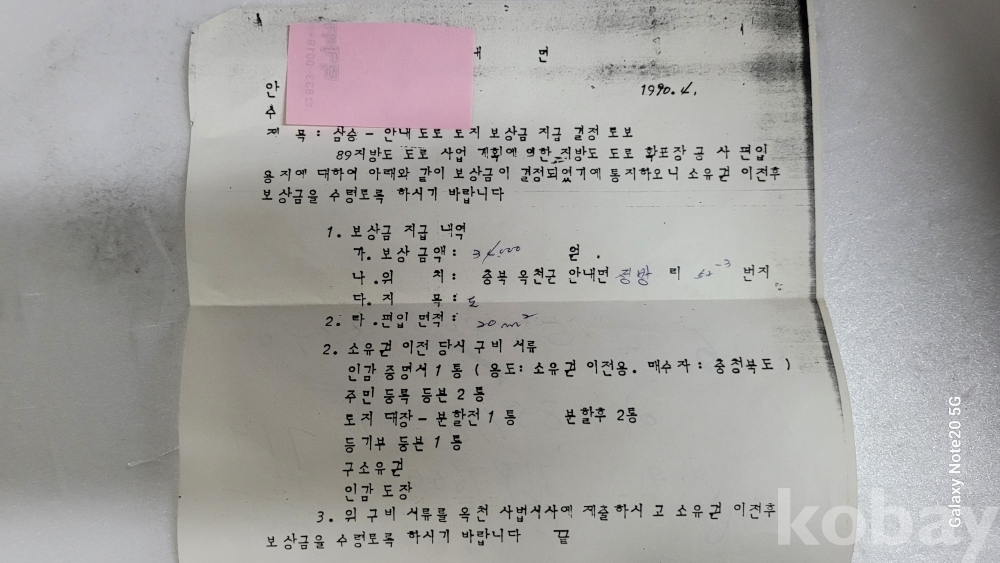 내 면
안 1990. 4.
수
제 목 : 삼승 - 안내 도로 토지 보상금 지급 결정 통보
89지방도 도로 사업 계획에 의한 지방도 도로 확포장 공 사 편입
용지에 대하여 아래와 같이 보상금이 결정되었기에 통지하오니 소유권 이전후
보상금을 수령토록 하시기 바랍니다
1. 보상금 지급 내역
가. 보상 금액 : 원 .
나 .위 치 : 충북 옥천군 안내면 중방 리 -3 번지
다. 지 목 : 도
2. 라 .편입 면적 : 20m²
2. 소유권 이전 당시 구비 서류
인감 증명서 1 통 ( 용도: 소유권 이전용. 매수자 : 충청북도 )
주민 등록 등본 2 통
토지 대장 - 분할전 1 통 분할후 2통
등기부 등본 1 통
구소유권
인감 도장
3. 위 구비 서류를 옥천 사법서사에 제출하시 고 소유권 이전후
보상금을 수령토록 하시기 바랍니다 끝
kobay
Galaxy Note20 5G